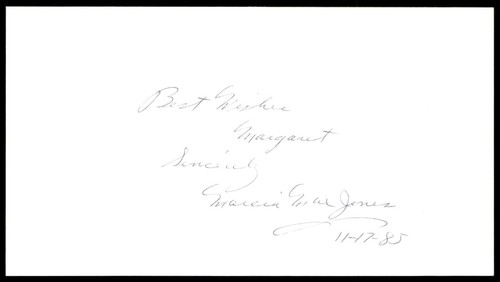 Best Wishes
Margaret
Sincerely
Marcia Mae Jones
11-17-85